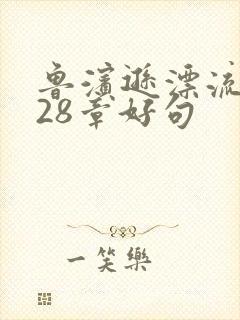 鲁濱遜漂流
28章好句
一笑樂